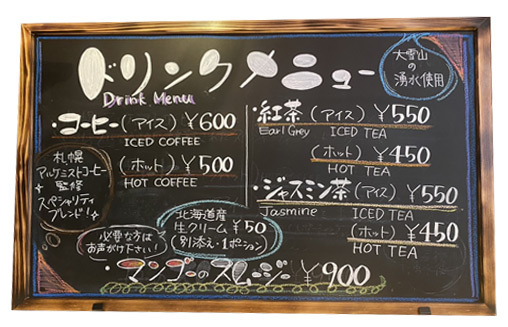 ドリンクメニュー
Drink Menu
大雪山
の
湧水使用
・コーヒー(アイス) ¥600
ICED COFFEE
(ホット) ¥500
HOT COFFEE
札幌
アルケミストコーヒー
監修
スペシャリティ
ブレンド!
必要な方は
お声がけ下さい!
北海道産
生クリーム ¥50
(別添え・1ポーション)
・紅茶(アイス) ¥550
Earl Grey ICED TEA
(ホット) ¥450
HOT TEA
・ジャスミン茶(アイス) ¥550
Jasmine ICED TEA
(ホット) ¥450
HOT TEA
・マンゴーのスムージー ¥900